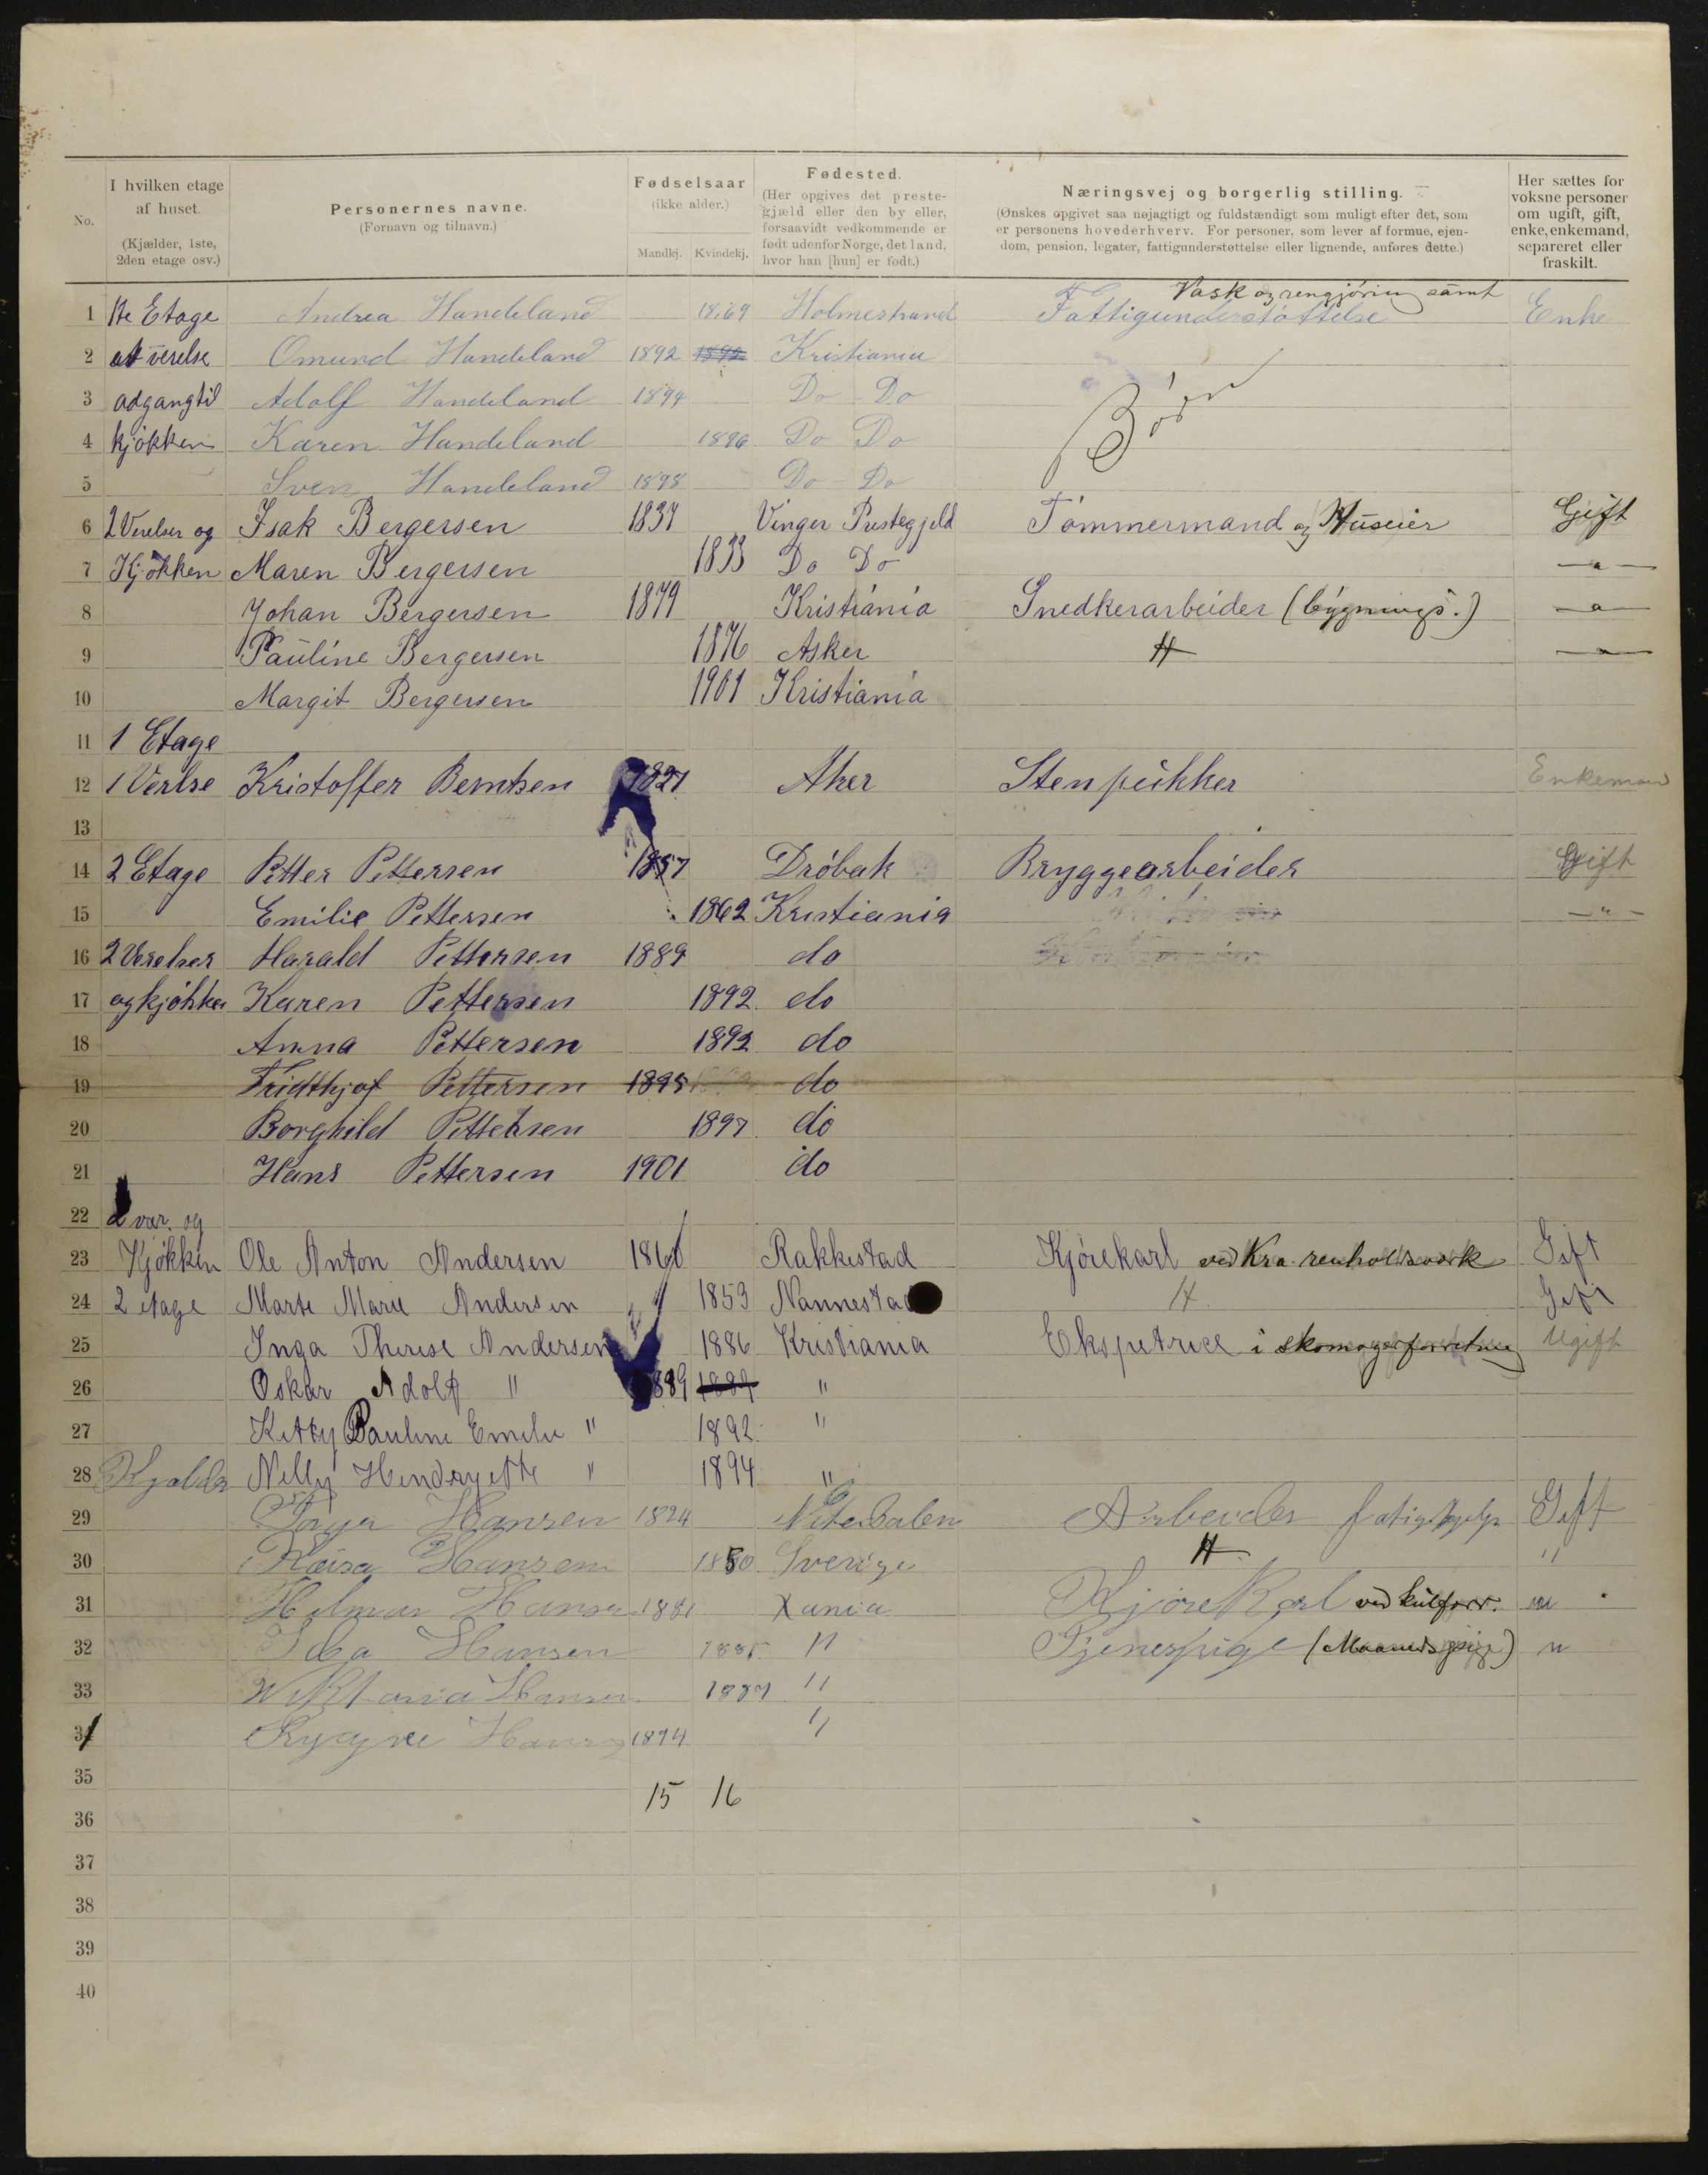 No.
I hvilken etage af huset. (Kjælder, 1ste, 2den etage osv.)
Personernes navne. (Fornavn og tilnavn.)
Fødselsaar (ikke alder.) Mandkj. Kvindekj.
Fødested. (Her opgives det prestegjæld eller den by eller, forsaavidt vedkommende er født udenfor Norge, det land, hvor han [hun] er født.)
Næringsvej og borgerlig stilling. (Ønskes opgivet saa nøjagtigt og fuldstændigt som muligt efter det, som er personens hovederhverv. For personer, som lever af formue, ejendom, pension, legater, fattigunderstøttelse eller lignende, anføres dette.)
Her sættes for voksne personer om ugift, gift, enke, enkemand, separeret eller fraskilt.
Vask og rengjøring samt
1 1te Etage Andrea Handeland 1869 Holmestrand Fattigunderstøttelse Enke
2 et verelse Omund Handeland 1892 1892 Kristiania
3 adgang til Adolf Handeland 1894 Do Do Børn
4 kjøkken Karen Handeland 1896 Do Do
5 Sven Handeland 1898 Do Do
6 2 Verelser og Isak Bergersen 1837 Vinger Prestegjeld Tømmermand og Huseier Gift
7 Kjøkken Maren Bergersen 1833 Do Do - " -
8 Johan Bergersen 1879 Kristiania Snedkerarbeider (bygnings.) - " -
9 Pauline Bergersen 1876 Asker H - " -
10 Margit Bergersen 1901 Kristiania
11 1 Etage
12 1 Verlse Kristoffer Berntsen 1821 Aker Stenpukker Enkemand
13
14 2 Etage Petter Pettersen 1857 Drøbak Bryggearbeider Gift
15 Emilie Pettersen 1862 Kristiania - " -
16 2 Verelser Harald Pettersen 1889 do
17 og kjøkken Karen Pettersen 1892 do
18 Anna Pettersen 1892 do
19 Fridthjof Pettersen 1895 do
20 Borghild Pettersen 1897 do
21 Hans Pettersen 1901 do
22 2 vær. og
23 Kjøkken Ole Anton Andersen 1860 Rakkestad Kjørekarl ved Kra. renholdsværk Gift
24 2 etage Marte Marie Andersen 1853 Nannestad H Gift
25 Inga Therese Andersen 1886 Kristiania Ekspetrice i skomagerforretning Ugift
26 Oskar Adolf " 1889 1889 "
27 Kitty Pauline Emilie " 1892 "
28 Kjælder Nelly Hendryette " 1894 "
29 Hansen 1824 Nitedalen Arbeider fatighjelp Gift
30 Kaisa Hansen 1850 Sverige H "
31 Hilmar Hansen 1881 Xania Kjøre Karl ved kulforr. u
32 Hansen 1885 " Tjenespige (Maanedspige) u
33 Wiktoria Hansen 1887 "
34 Hansen 1894 "
35
15 16
36
37
38
39
40